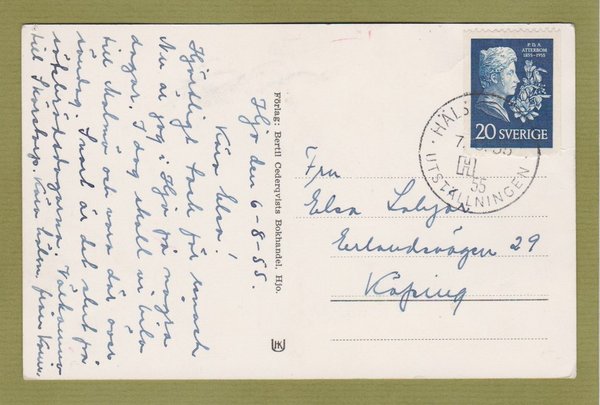 Hjo den 6-8-55.
Kära Elsa!
Hjärtligt tack för senast
Nu är jag i Hjo på några
dagar. I dag skall vi bila
till Malmö och vara där över
söndag. Snart är det slut på
Välkomna
till Skörstorp. Kära hälsn. från
Förlag: Bertil Cederqvists Bokhandel, Hjo.
P.D.A.
ATTERBOM
1855-1955
20 SVERIGE
HÄLS
7. 55
H
55
UTSTÄLLNINGEN
Fru
Elsa
Erlandsvägen 29
Köping
UK